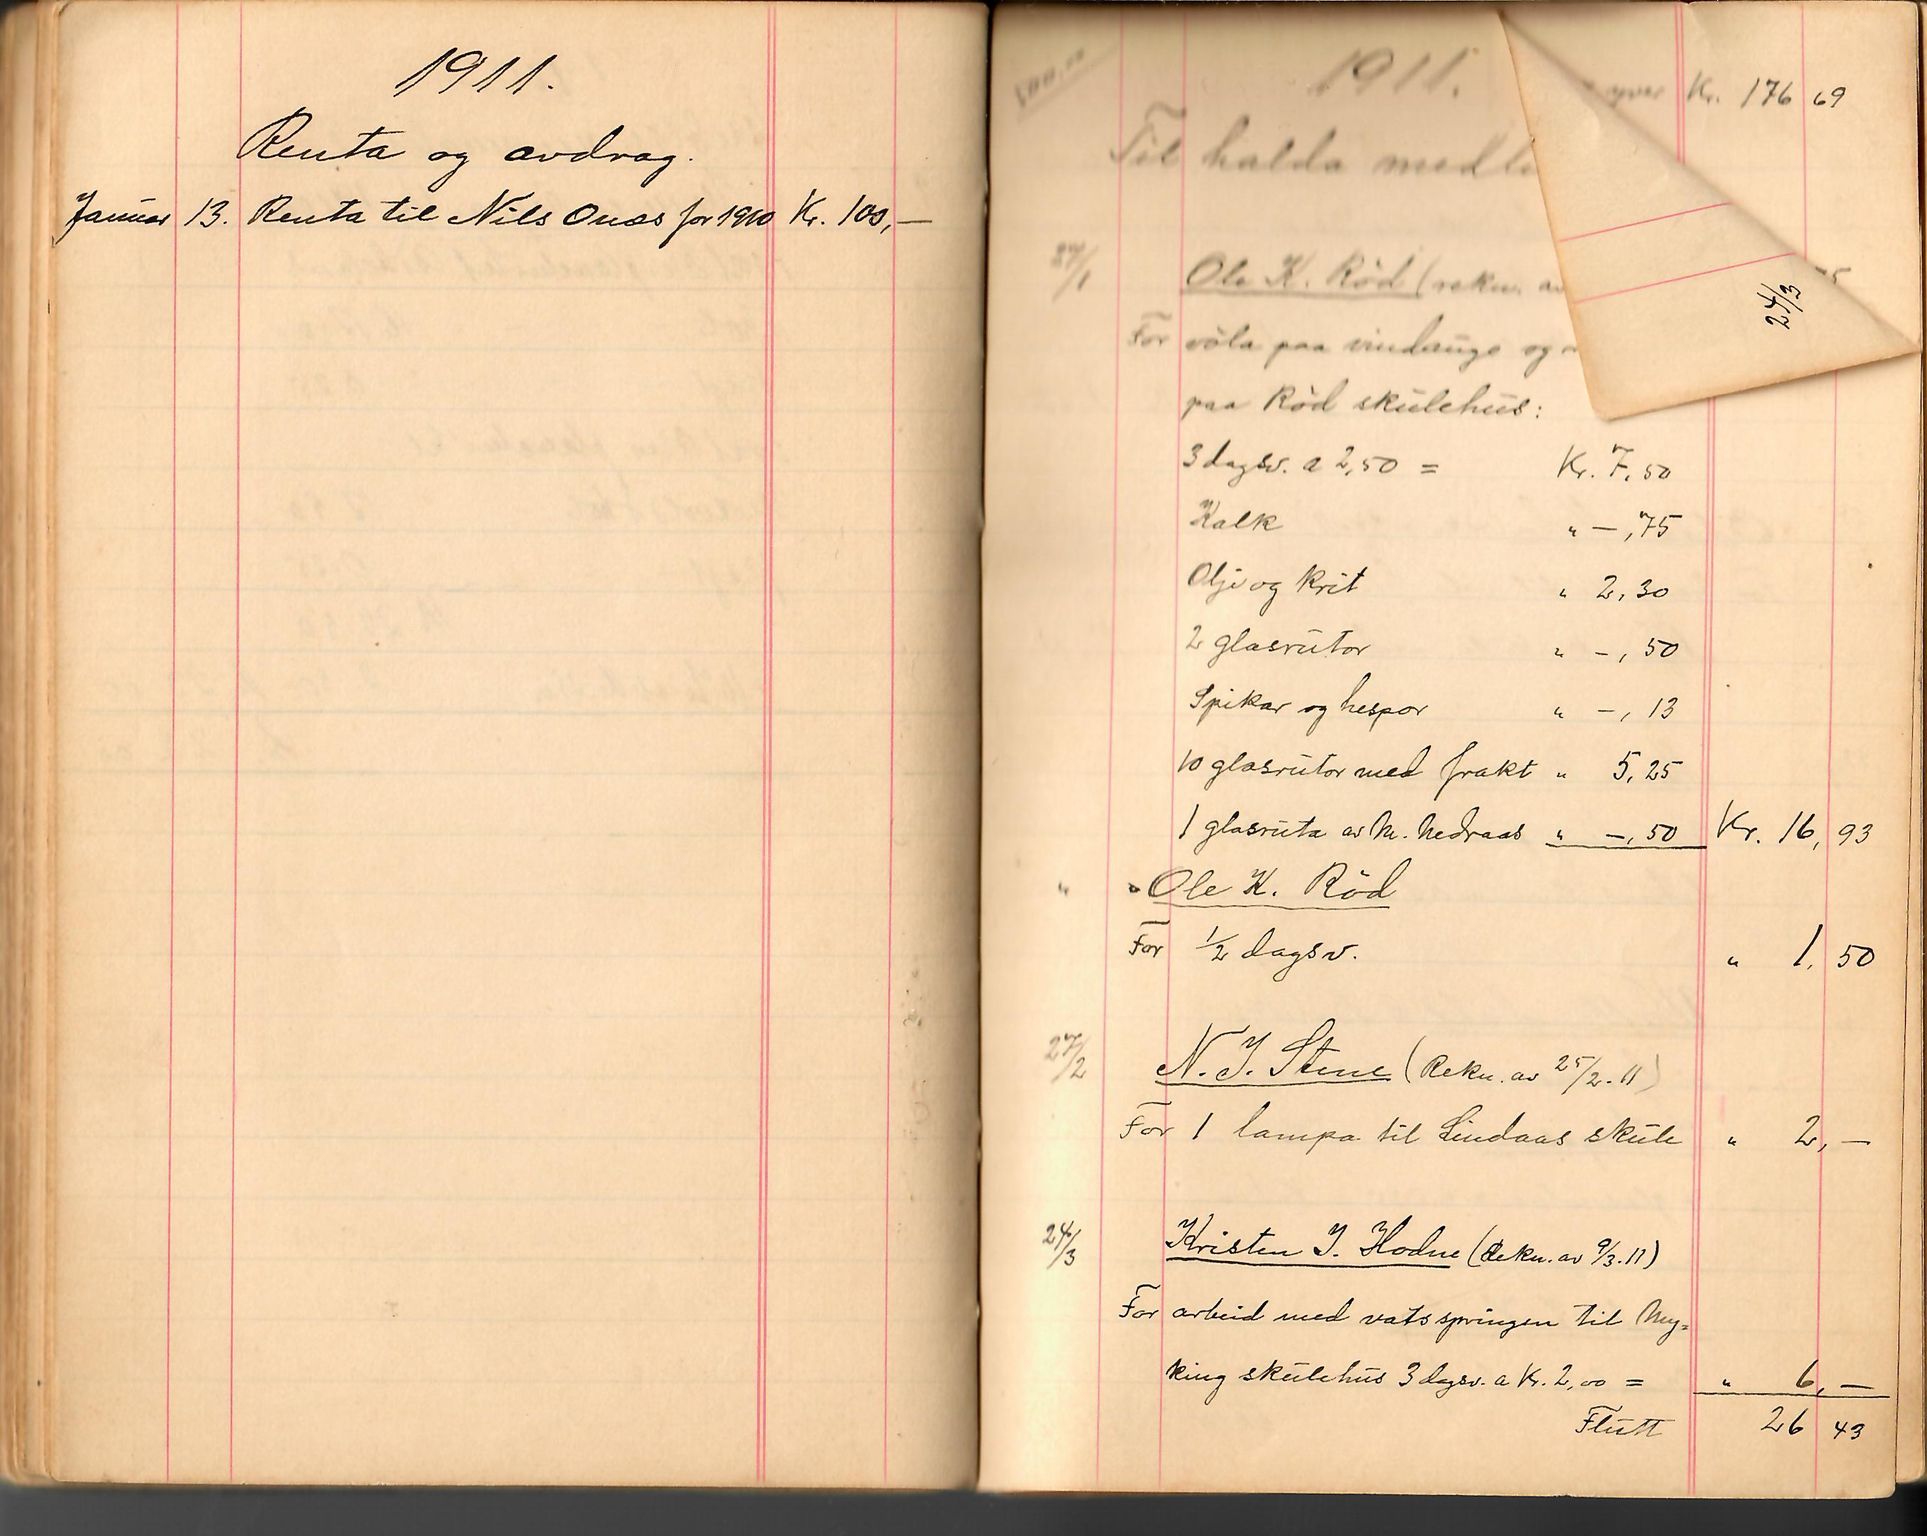 1911.
Renta og avdrag.
Januar 13. Renta til Nils Onæs for 1910 Kr. 100,—
1911.
yver Kr. 176 69
Til halda medl
24/1 Ole K. Röd (rekn. av
For völa paa vindauge og
paa Röd skulehus:
24/3
3 dagsv. a 2,50 = Kr. 7,50
Kalk " —,75
Olje og krit " 2,30
2 glasrutor " —,50
Spikar og hespor " —,13
10 glasrutor med frakt " 5,25
1 glasruta av M. Nedraas " —,50 Kr. 16,93
" " Ole K. Röd
For 1/2 dagsv. " 1,50
27/2 N. J. Stene (Rekn. av 25/2.11)
For 1 lampa til Lindaas skule " 2,—
24/3 Kristen J. Hodne (Rekn. av 9/3.11)
For arbeid med vatsspringen til My=
king skulehus 3 dagsv. a Kr. 2,00 = " 6,—
Flutt 26 43